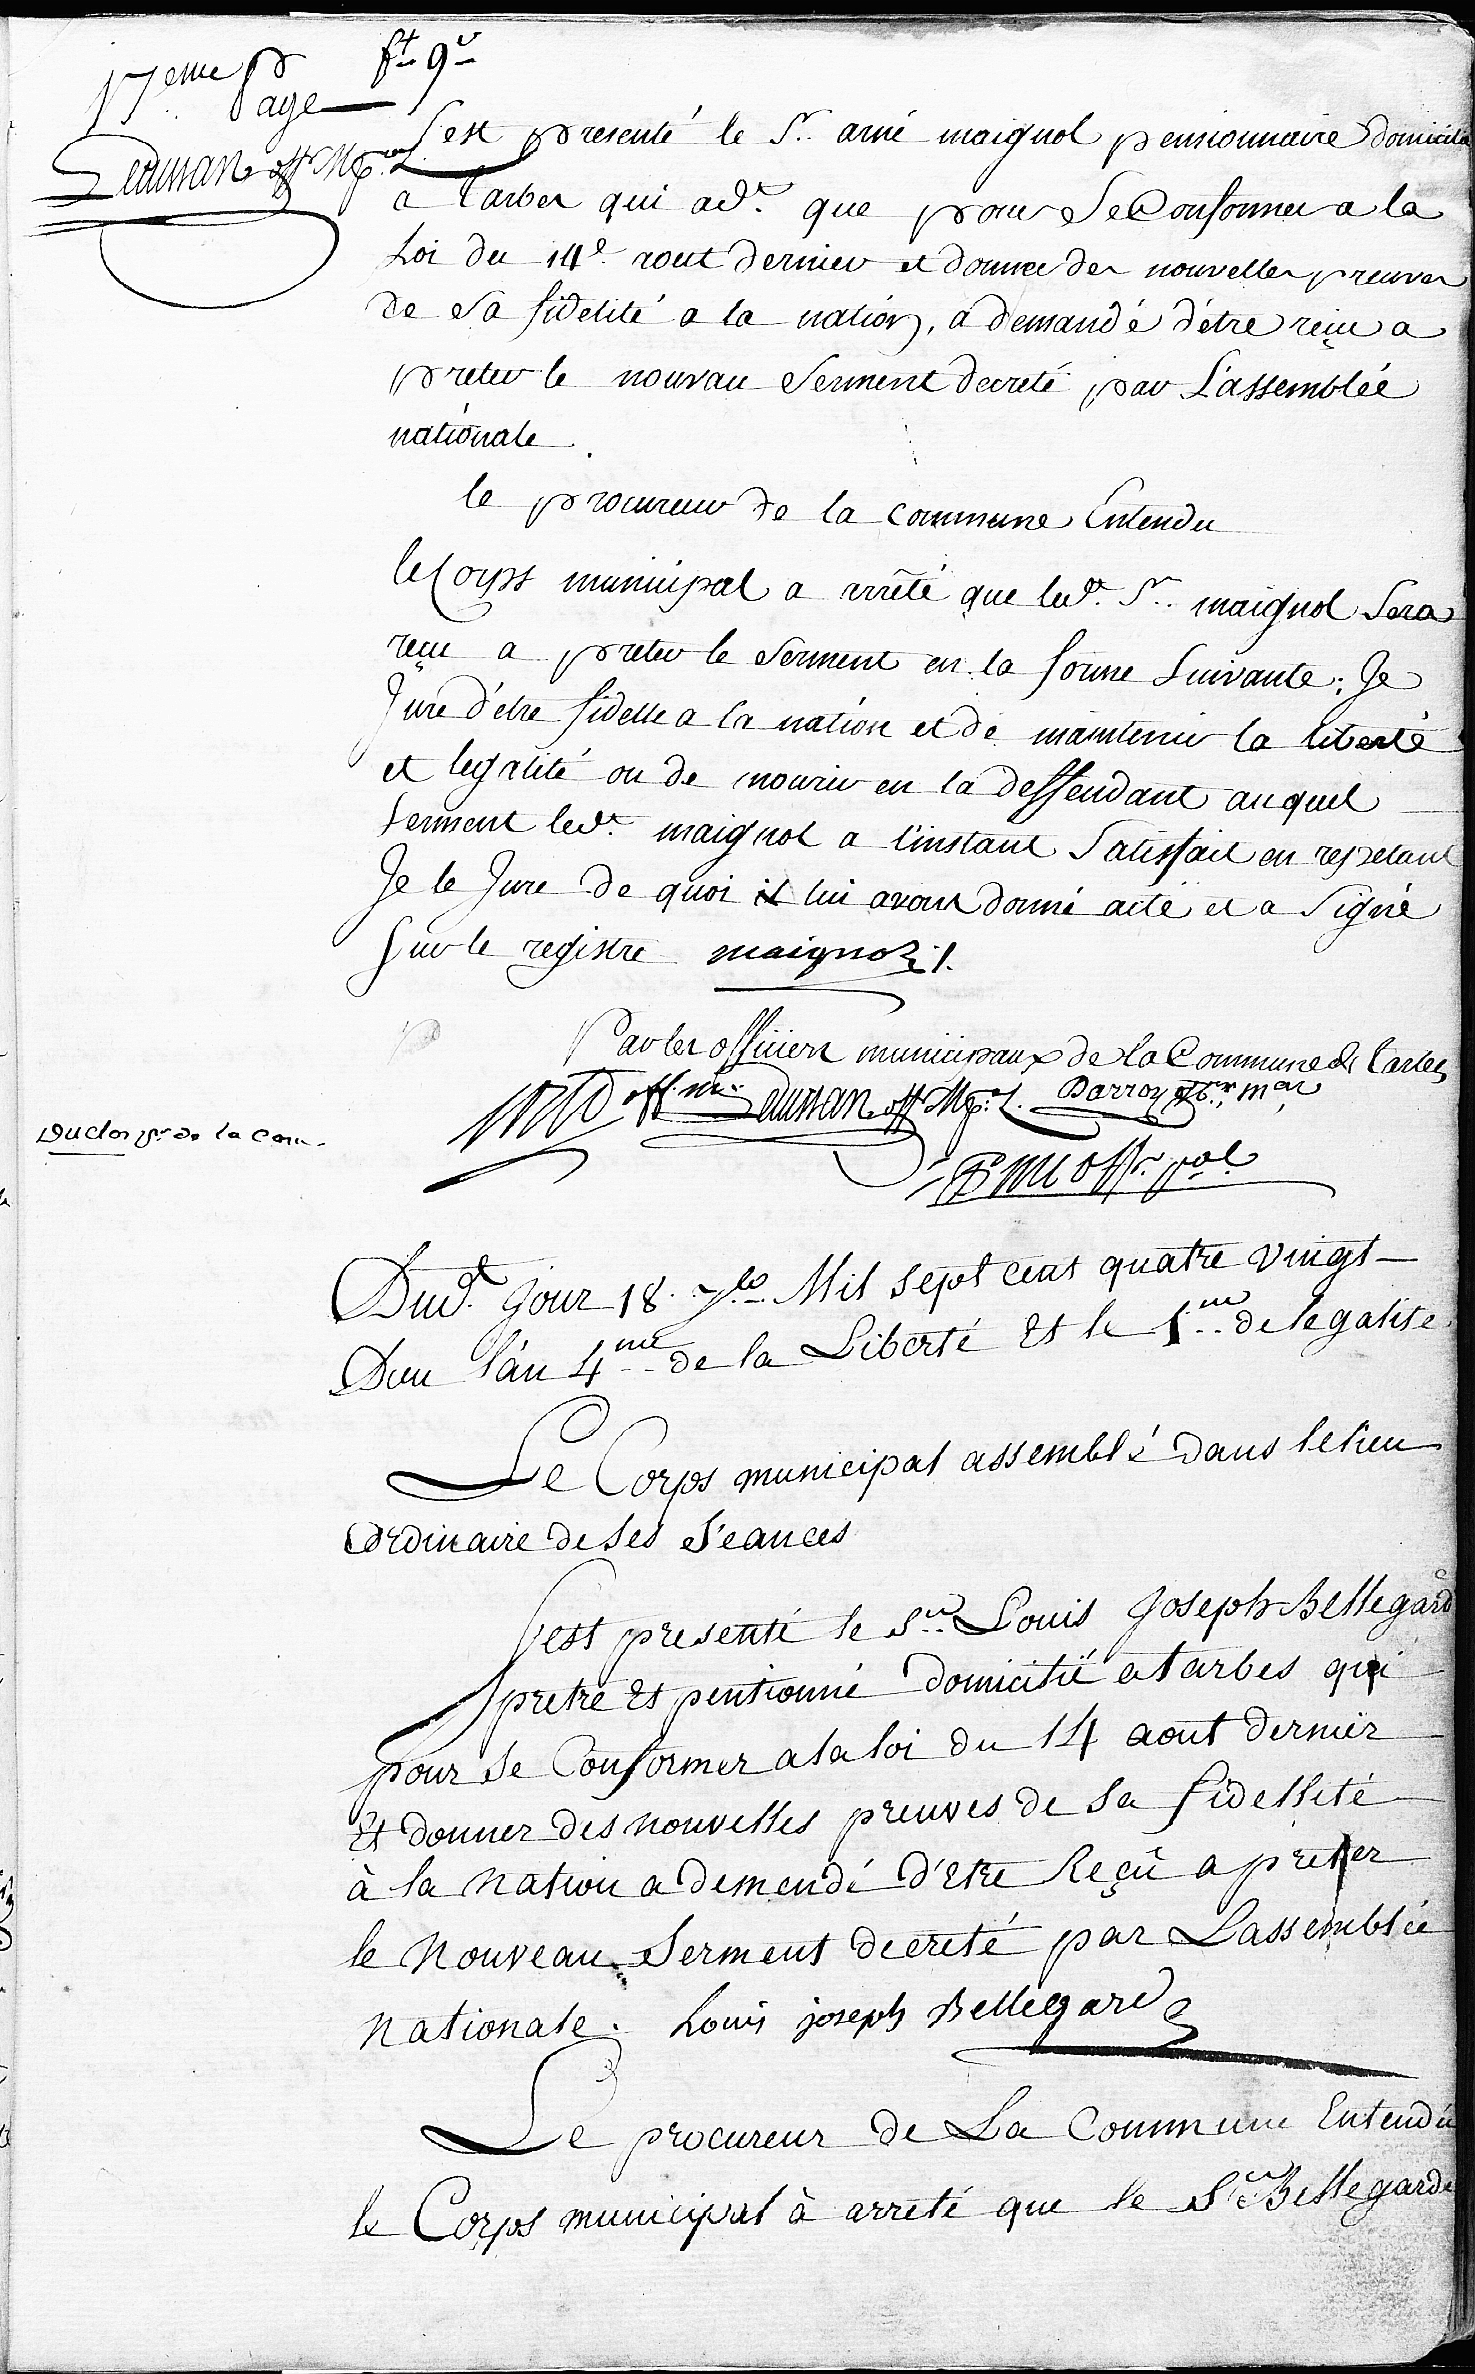 17eme page
ft 9v
S'est presenté le Sr. aimé maignol pensionnaire domicilié
a tarbes qui ad.t que pour Se Conformer a la
Loi du 14e aout dernier et donner des nouvelles preuves
de Sa fidelité a la nation, a demandé d'étre reçu a
preter le nouvau Serment decreté par L'assemblée
nationale.
le procureur de la commune Entendu
le Corps municipal a arrêté que led.t Sr. maignol Sera
reçu a preter le Serment en la forme Suivante; Je
Jure d'etre fidelle a la nation et de maintenir la liberté
et legalité ou de mourir en la deffendant auquel
Serment led.t maignol a l'instant Satisfait en repetant
Je le Jure de quoi il lui avons donné acte et a Signé
Sur le registre maignol ./.
Par les officiers municipaux de la Commune de Tarbes
off. m.
off. Mp.al
Darroy
off.r pal
Duclos pr. de la Com.
Dud.t jour 18. 7bre Mil sept cent quatre vingt
Dou l'an 4me de la Liberté Et le 1er de legalite
Le Corps municipal assemblé dans le lieu
Ordinaire de Ses Séances
S'est presenté le Sr. Louis Joseph Bellegarde
pretre Et pentionné domicilié a tarbes qui
pour se Conformer a la loi du 14 aout dernier
Et donner des nouvelles preuves de Sa fidellité
à la Nation a demendé d'Etre Reçû a preter
le Nouveau Serment decreté par Lassemblée
Nationale. Louis joseph Bellegarde
Le procureur de La Commune Entendu
le Corps municipal à arreté que le Sr. Bellegarde